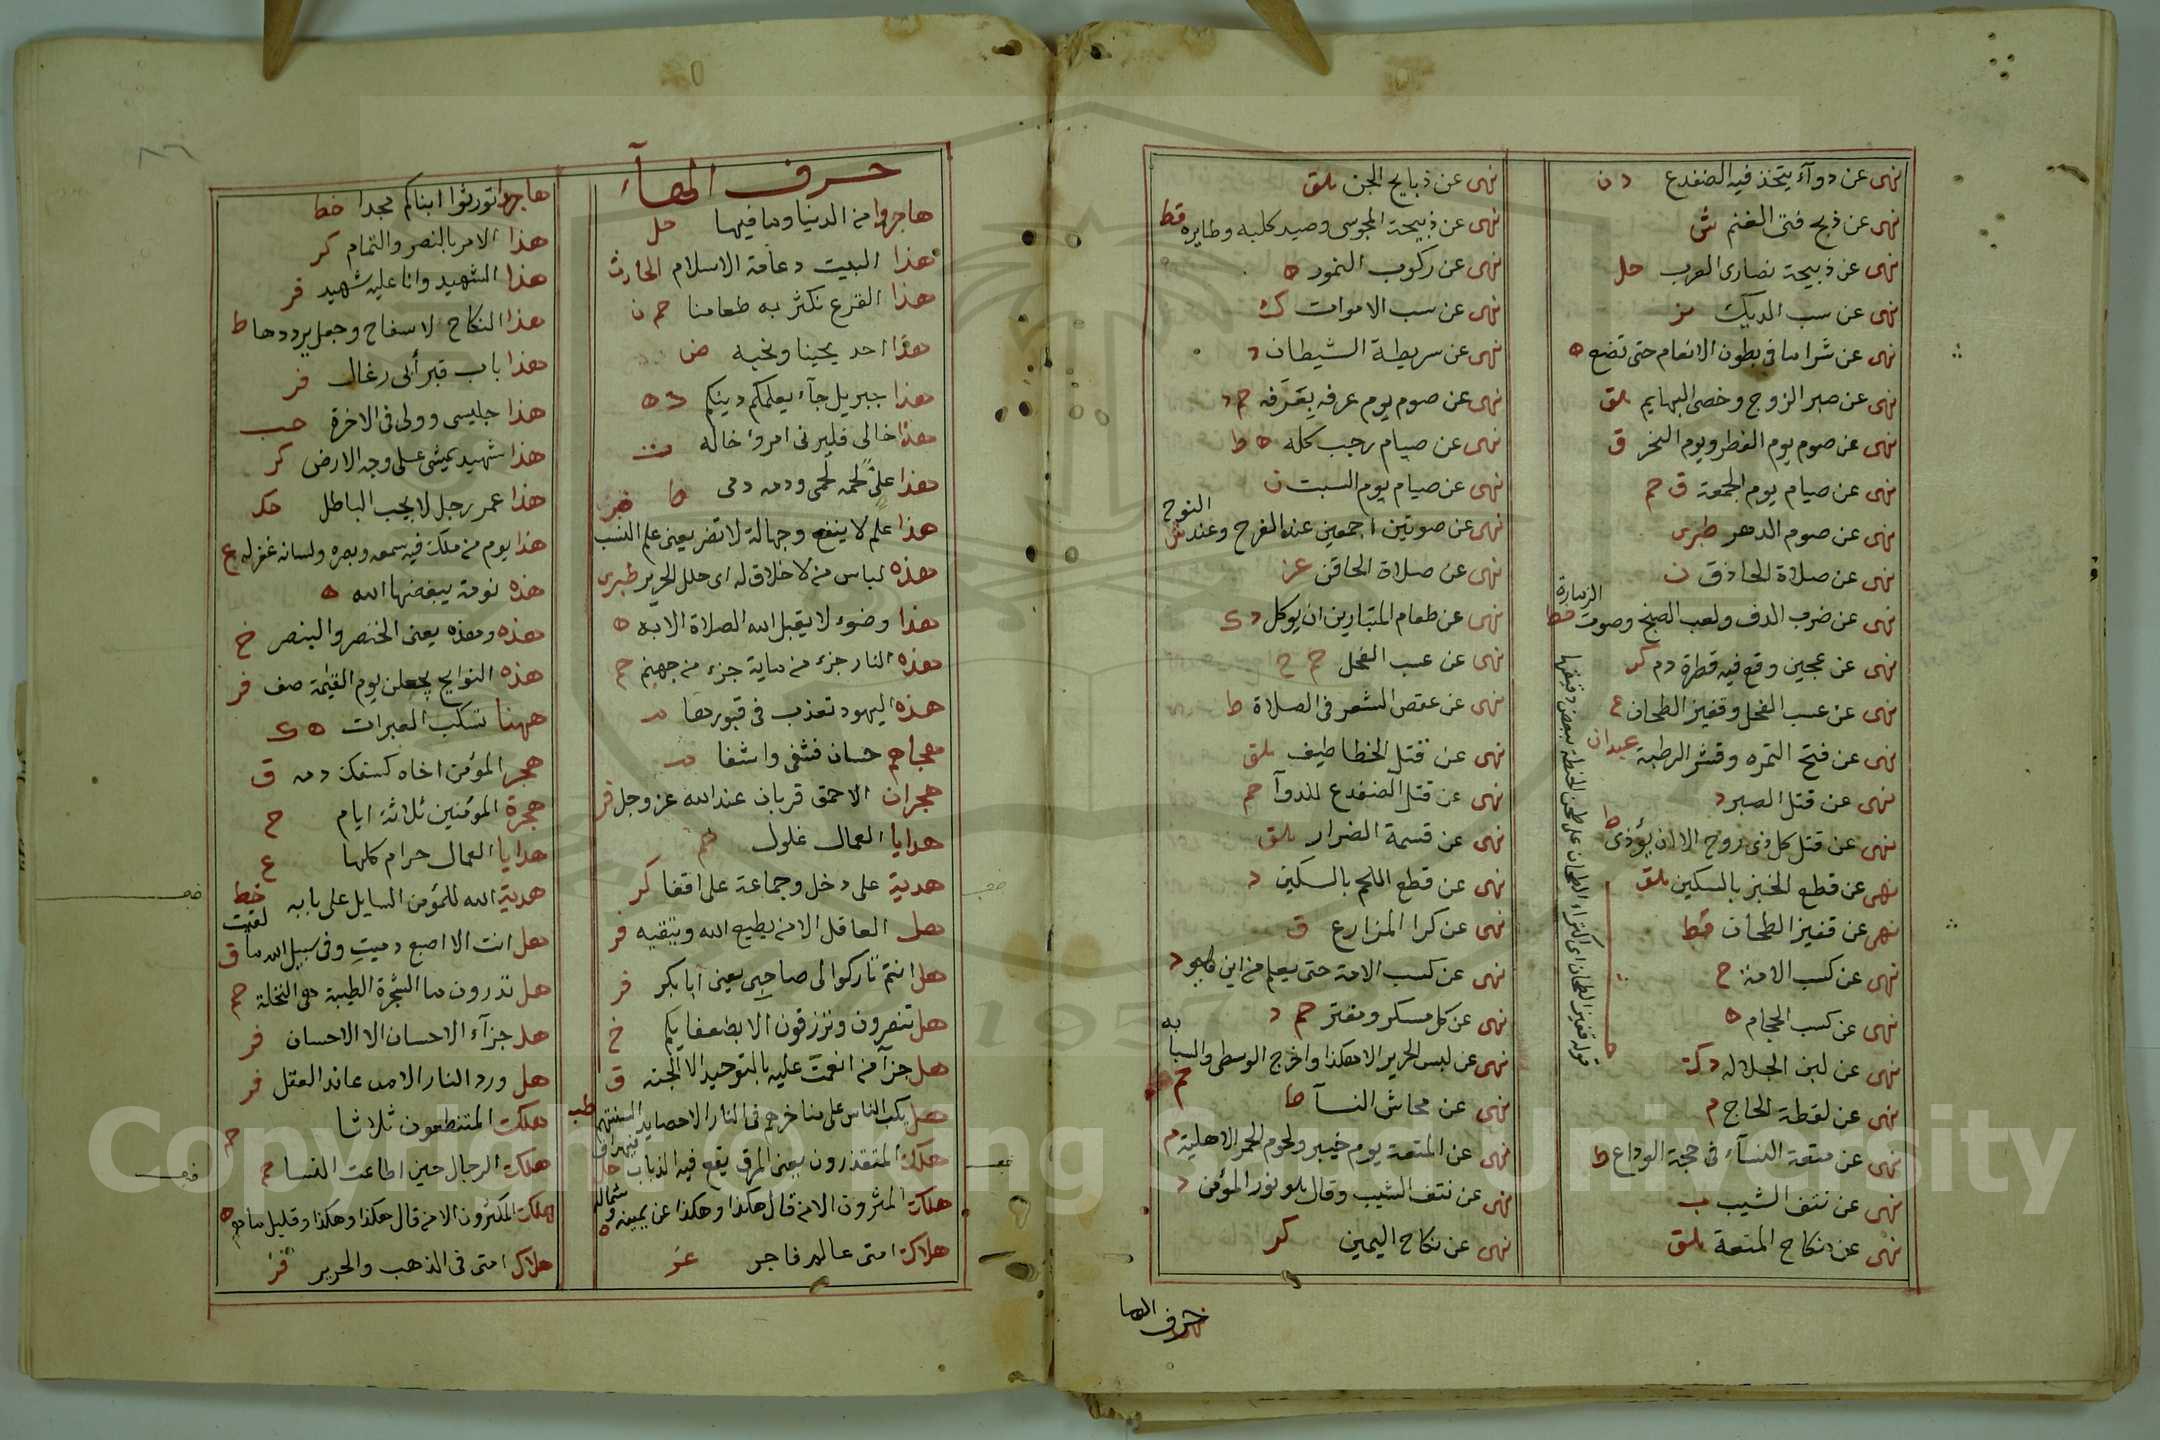 نهى عن دوآء يتخذ فيه الضفدع د ن
نهى عن ذبح فتى الغنم ش
نهى عن ذبيحة نصارى العرب حل
نهى عن سب الديك
نهى عن شرا ما فى بطون الانعام حتى تضع ه
نهى عن صبر الزوج وخصى البهايم
نهى عن صوم يوم الفطر ويوم النحر ق
نهى عن صيام يوم الجمعة ق حم
نهى عن صوم الدهر طبرى
نهى عن صلاة الحاذق ن
نهى عن ضرب الدف ولعب الصنج وصوت الزمارة خط
نهى عن عجين وقع فيه قطرة دم
نهى عن عسب الفحل وقفيز الطحان ع
نهى عن فتح التمره وقشر الرطبة عبدان
نهى عن قتل الصبر د
نهى عن قتل كل ذى روح الا ان يؤذى ط
نهى عن قطع الخبز بالسكين
نهى عن قفيز الطحان قط
نهى عن كسب الامة
نهى عن كسب الحجام ه
نهى عن لبن الجلاله د ك
نهى عن لقطة الحاج م
نهى عن متعة النسآء فى حجة الوداع ط
نهى عن نتف الشيب
نهى عن نكاح المتعة
قوله قفيز الطحان اى اكتراء الطحان على طحن الحنطة ببعض دقيقها
نهى عن ذبايح الجن
نهى عن ذبيحة المجوسى وصيد كلبه وطايره قط
نهى عن ركوب النمور ه
نهى عن سب الاموات ك
نهى عن سريطة الشيطان د
نهى عن صوم يوم عرفه بعرفه حم د
نهى عن صيام رجب كله ه ط
نهى عن صيام يوم السبت ن
نهى عن صوتين اجمعين عند الفرح وعند النوح
نهى عن صلاة الحاقن
نهى عن طعام المتبارين ان يوكل د ك
نهى عن عسب الفحل حم خ
نهى عن عقص الشعر فى الصلاة ط
نهى عن قتل الخطاطيف
نهى عن قتل الضفدع للدوآ حم
نهى عن قسمة الضرار
نهى عن قطع اللحم بالسكين د
نهى عن كرا المزارع ق
نهى عن كسب الامة حتى يعلم من اين هو د
نهى عن كل مسكر ومفتر حم د
نهى عن لبس الحرير الا هكذا واخرج الوسطى والسبابه حم
نهى عن محاش النسآ
نهى عن المتعة يوم خيبر ولحوم الحمر الاهلية م
نهى عن نتف الشيب وقال هو نور المؤمن د
نهى عن نكاح اليمين كر
حرف الها
حرف الهآء
هاجروا من الدنيا وما فيها حل
هذا البيت دعامة الاسلام الحارث
هذا القرع نكثر به طعامنا حم ن
هذا احد يحبنا ونحبه
هذا جبريل جآء يعلمكم دينكم
هذا خالى فليرنى امرؤ خاله ت
هذا علىّ لحمه لحمى ودمه دمى
هذا علم لا ينفع وجهالة لا تضر يعنى علم النسب
هذه لباس من لا خلاق له اى حلل الحرير طبرى
هذا وضوء لا يقبل الله الصلاة الا به ه
هذه النار جزء من ماية جزء من جهنم حم
هذه اليهود تعذب فى قبورها
هجاهم حسان فشفى واشفا
هجران الاحمق قربان عند الله عز وجل فر
هدايا العمال غلول حم
هدية على دخل وجماعة على اقفا كر
هل العاقل الا من يطيع الله ويتقيه فر
هل انتم تاركوا لى صاحبى يعنى ابا بكر فر
هل تنصرون وترزقون الا بضعفايكم خ
هل جزآ من انعمت عليه بالتوحيد الا الجنه ق
هل يكب الناس على مناخرهم فى النار الا حصايد السنتهم طب
هلك المتقذرون يعنى المرق يقع فيه الذباب حل
هلك المثرون الا من قال هكذا وهكذا عن يمينه وشماله ه
هلاك امتى عالم فاجر
٨٦
هاجروا تورثوا ابناكم مجدا خط
هذا الامر بالنصر والتمام كر
هذا الشهيد وانا عليه شهيد فر
هذا النكاح لا سفاح وجعل يرددها ط
هذا باب قبر أبى رغال فر
هذا جليسى وولى فى الاخرة حب
هذا شهيد يمشى على وجه الارض كر
هذا عمر رجل لا يحب الباطل
هذا يوم من ملك فيه سمعه وبصره ولسانه غفر له ع
هذه نومة يبغضها الله ه
هذه وهذه يعنى الخنصر والبنصر خ
هذه النوايح يجعلن يوم القيمة صف فر
ههنا تسكب العبرات ه ك
هجر المؤمن اخاه كسفك دمه ق
هجرة المؤمنين ثلاثة ايام
هدايا العمال حرام كلها ع
هدية الله للمؤمن السايل على بابه خط
هل انت الا اصبع دميت وفى سبيل الله ما لقيت ق
هل تدرون ما الشجرة الطيبة هى النخلة حم
هل جزآء الاحسان الا الاحسان فر
هل ورد النار الا من عاند العقل فر
هلكت المتنطعون ثلاثا
هلكت الرجال حين اطاعت النسا حم
هلك المكثرون الا من قال هكذا وهكذا وهكذا وقليل ما هم ه
هلاك امتى فى الذهب والحرير
Copyright © King Saud University
1957